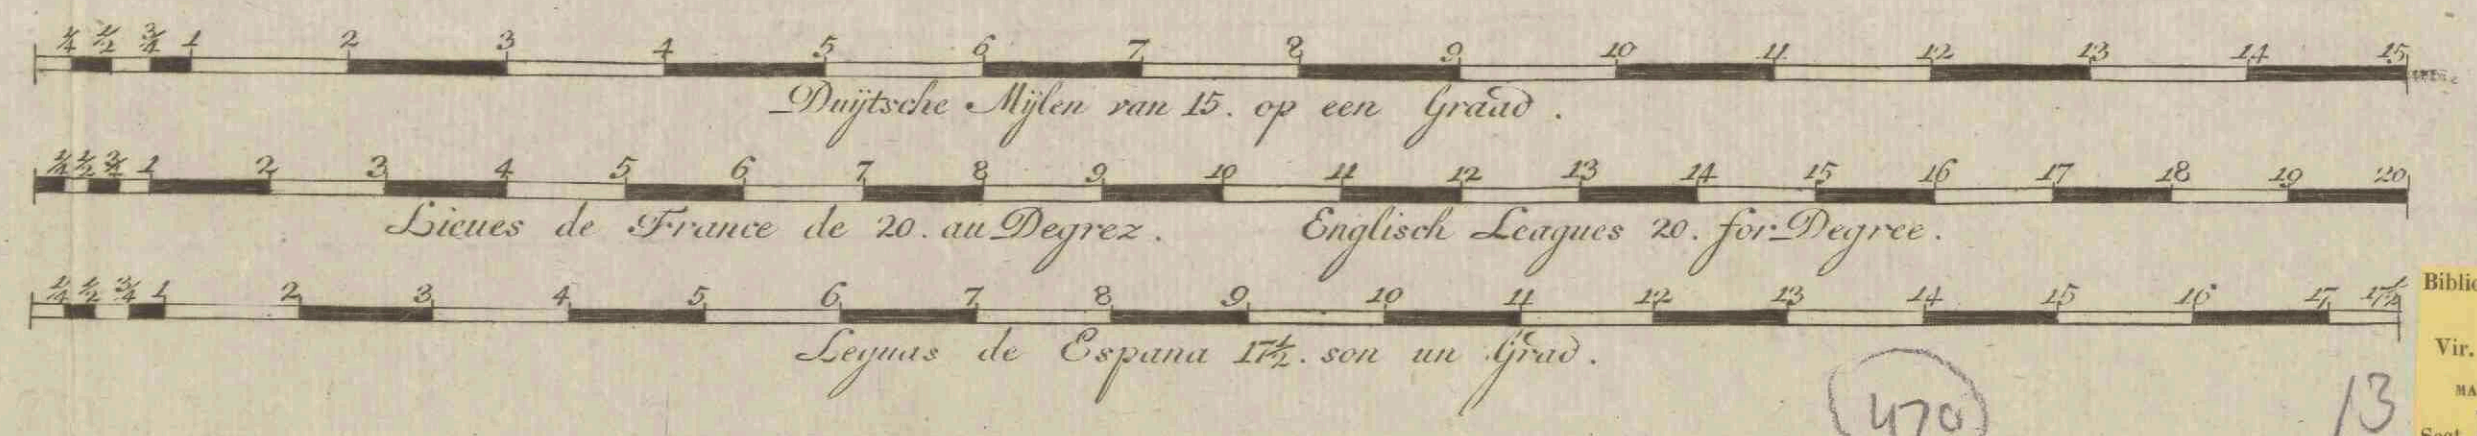 1/4 1/2 3/4 1 2 3 4 5 6 7 8 9 10 11 12 13 14 15
Duÿtsche Mÿlen van 15. op een Graad.
1/4 1/2 3/4 1 2 3 4 5 6 7 8 9 10 11 12 13 14 15 16 17 18 19 20
Lieues de France de 20. au Degrez. Englisch Leagues 20. for Degree.
1/4 1/2 3/4 1 2 3 4 5 6 7 8 9 10 11 12 13 14 15 16 17 17 1/2
Leguas de Espana 17 1/2. son un Grad.
470
13
Biblio
Vir.
MA